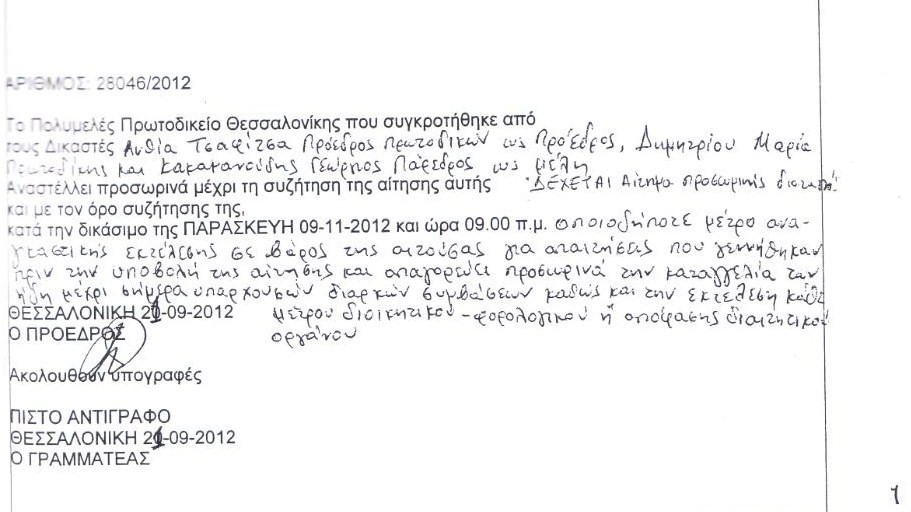 ΑΡΙΘΜΟΣ: 28046/2012
Το Πολυμελές Πρωτοδικείο Θεσσαλονίκης που συγκροτήθηκε από
τους Δικαστές Ανθία Τσαφίτσα Πρόεδρος πρωτοδικών ως Πρόεδρος, Δημητρίου Μαρία
Πρωτοδίκης και Γεώργιος Πάρεδρος ως μέλη
Αναστέλλει προσωρινά μέχρι τη συζήτηση της αίτησης αυτής ΔΕΧΕΤΑΙ Αίτημα προσωρινής
και με τον όρο συζήτησης της,
κατά την δικάσιμο της ΠΑΡΑΣΚΕΥΗ 09-11-2012 και ώρα 09.00 π.μ. οποιοδήποτε μέτρο ανα-
γκαστικής εκτέλεσης σε βάρος της αιτούσας για απαιτήσεις που γεννήθηκαν
πριν την υποβολή της αίτησης και απαγορεύει προσωρινά την καταγγελία των
ήδη μέχρι σήμερα υπαρχουσών διαρκών συμβάσεων καθώς και την εκτέλεση κάθε
ΘΕΣΣΑΛΟΝΙΚΗ 21-09-2012 μέτρου διοικητικού - φορολογικού ή απόφασης διαιτητικού
Ο ΠΡΟΕΔΡΟΣ οργάνου
Ακολουθούν υπογραφές
ΠΙΣΤΟ ΑΝΤΙΓΡΑΦΟ
ΘΕΣΣΑΛΟΝΙΚΗ 21-09-2012
Ο ΓΡΑΜΜΑΤΕΑΣ
1